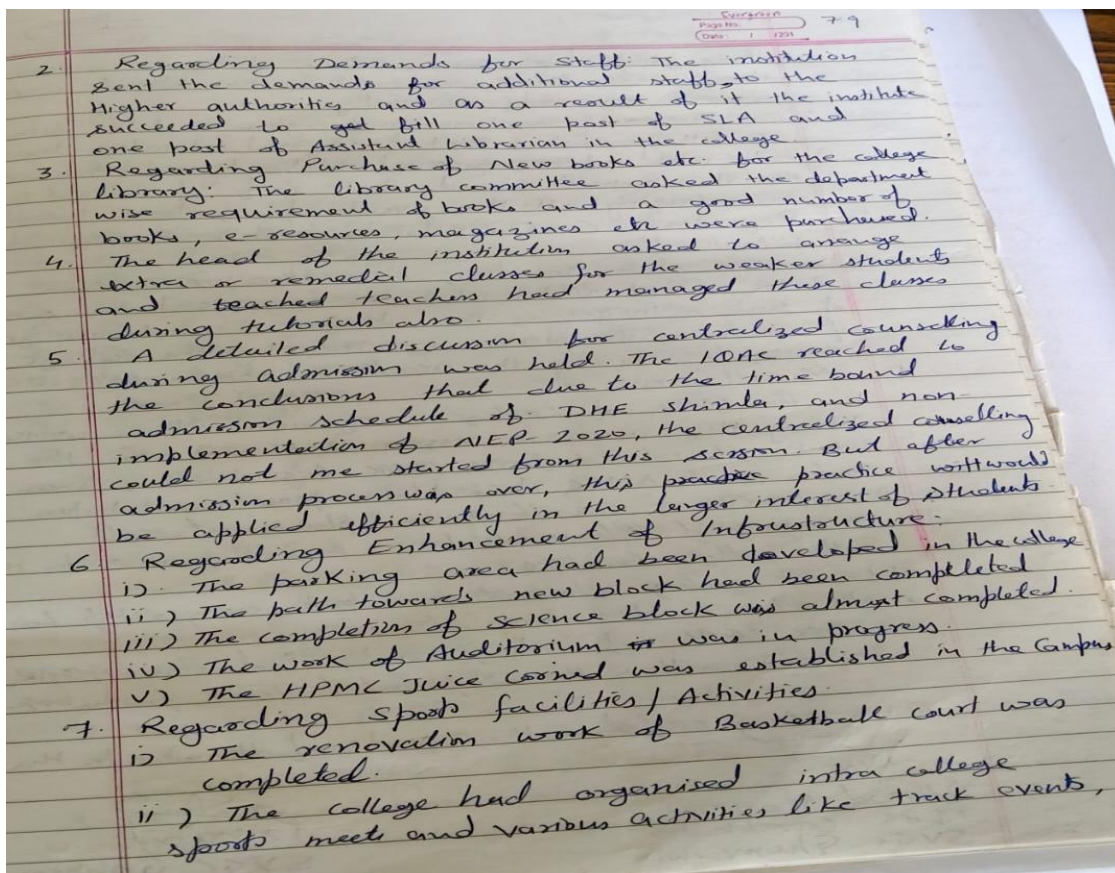 Evergreen
Page No. 79
Date: / /202
2. Regarding Demands for Staff: The institution
sent the demands for additional staff, to the
Higher authorities and as a result of it the institute
succeeded to get fill one post of SLA and
one post of Assistant Librarian in the college.
3. Regarding Purchase of New books etc. for the college
library: The library committee asked the department
wise requirement of books and a good number of
books, e-resources, magazines etc were purchased.
4. The head of the institution asked to arrange
extra or remedial classes for the weaker students
and teached teachers had managed these classes
during tutorials also.
5. A detailed discussion for centralized counselling
during admission was held. The IQAC reached to
the conclusions that due to the time bound
admission schedule of DHE Shimla, and non-
implementation of NEP-2020, the centralized counselling
could not me started from this session. But after
admission process was over, this practice practice would
be applied efficiently in the larger interest of students.
6. Regarding Enhancement of Infrustructure:
i). The parking area had been developed in the college
ii) The path towards new block had been completed
iii) The completion of science block was almost completed.
iv) The work of Auditorium was in progress.
v) The HPMC Juice Corned was established in the Campus
7. Regarding sports facilities/Activities.
i) The renovation work of Basketball court was
completed.
ii) The college had organised intra college
sports meet and various activities like track events,